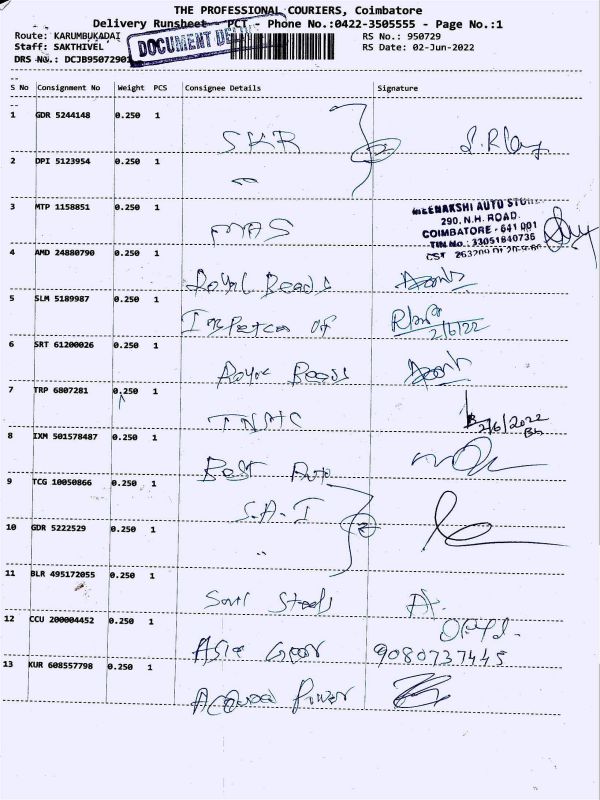 THE PROFESSIONAL COURIERS, Coimbatore
Delivery Runsheet - PCT - Phone No.:0422-3505555 - Page No.:1
Route: KARUMBUKADAI
RS No.: 950729
Staff: SAKTHIVEL
RS Date: 02-Jun-2022
DRS No.: DCJB95072901
DOCUMENT DEL
S No Consignment No Weight PCS Consignee Details Signature
1 GDR 5244148 0.250 1
SKR
2 DPI 5123954 0.250 1
3 MTP 1158851 0.250 1
MAS
MEENAKSHI AUTO STORE
290, N.H. ROAD,
COIMBATORE - 641 001
TIN No.: 33051640736
4 AMD 24880790 0.250 1
Royal Beads
5 SLM 5189987 0.250 1
Inspector of
2/6/22
6 SRT 61200026 0.250 1
Royal Beads
7 TRP 6807281 0.250 1
TNSTC
2/6/2022
8 IXM 501578487 0.250 1
Best Auto
9 TCG 10050866 0.250 1
S.A.I
10 GDR 5222529 0.250 1
11 BLR 495172055 0.250 1
Steels
12 CCU 200004452 0.250 1
Asia Gear
9080737445
13 KUR 608557798 0.250 1
Power